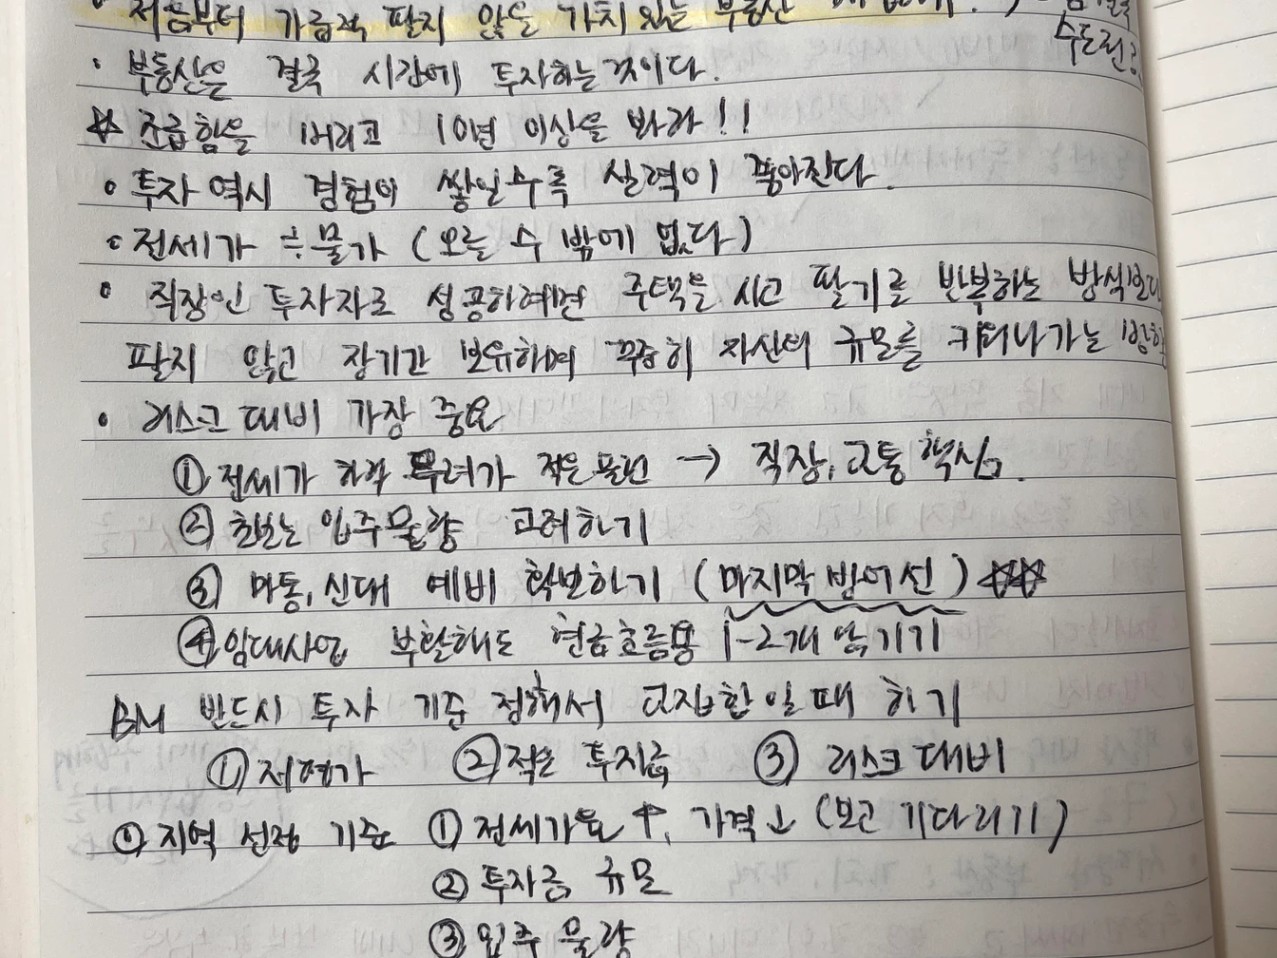 • 처음부터 가급적 팔지 않을 가치 있는 부동산
수도권
• 부동산은 결국 시간에 투자하는 것이다.
☆ 조급함을 버리고 10년 이상을 봐라!!
• 투자 역시 경험이 쌓일수록 실력이 좋아진다.
• 전세가 ≒ 물가 (오를 수 밖에 없다)
• 직장인 투자자로 성공하려면 주택을 사고 팔기를 반복하는 방식보다
팔지 않고 장기간 보유하며 꾸준히 자산의 규모를 키워나가는 방향
• 리스크 대비 가장 중요
① 전세가 하락 우려가 적은 물건 → 직장, 교통 핵심.
② 초보는 입주물량 고려하기
③ 마통, 신대 예비 확보하기 (마지막 방어선) ☆☆☆
④ 임대사업 부활해도 현금흐름용 1-2개 남기기
BM 반드시 투자 기준 정해서 교집합일 때 하기
① 저평가 ② 적은 투자금 ③ 리스크 대비
지역 선정 기준 ① 전세가율 ↑, 가격 ↓ (보고 기다리기)
② 투자금 규모
③ 입주 물량